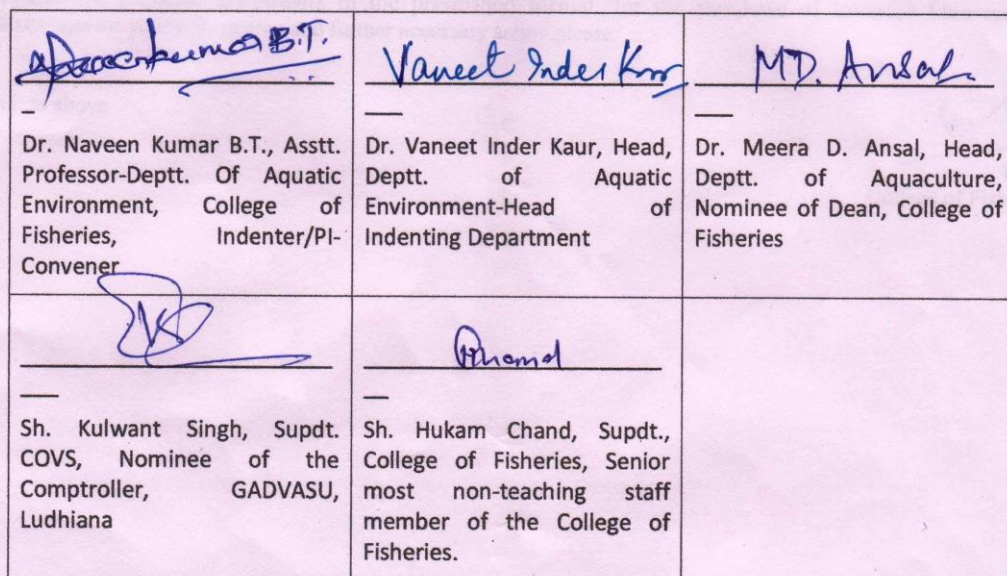 Naveenkumar B.T.
Vaneet Inder Kaur
MD. Ansal
Dr. Naveen Kumar B.T., Asstt.
Professor-Deptt. Of Aquatic
Environment, College of
Fisheries, Indenter/PI-
Convener
Dr. Vaneet Inder Kaur, Head,
Deptt. of Aquatic
Environment-Head of
Indenting Department
Dr. Meera D. Ansal, Head,
Deptt. of Aquaculture,
Nominee of Dean, College of
Fisheries
Sh. Kulwant Singh, Supdt.
COVS, Nominee of the
Comptroller, GADVASU,
Ludhiana
Sh. Hukam Chand, Supdt.,
College of Fisheries, Senior
most non-teaching staff
member of the College of
Fisheries.